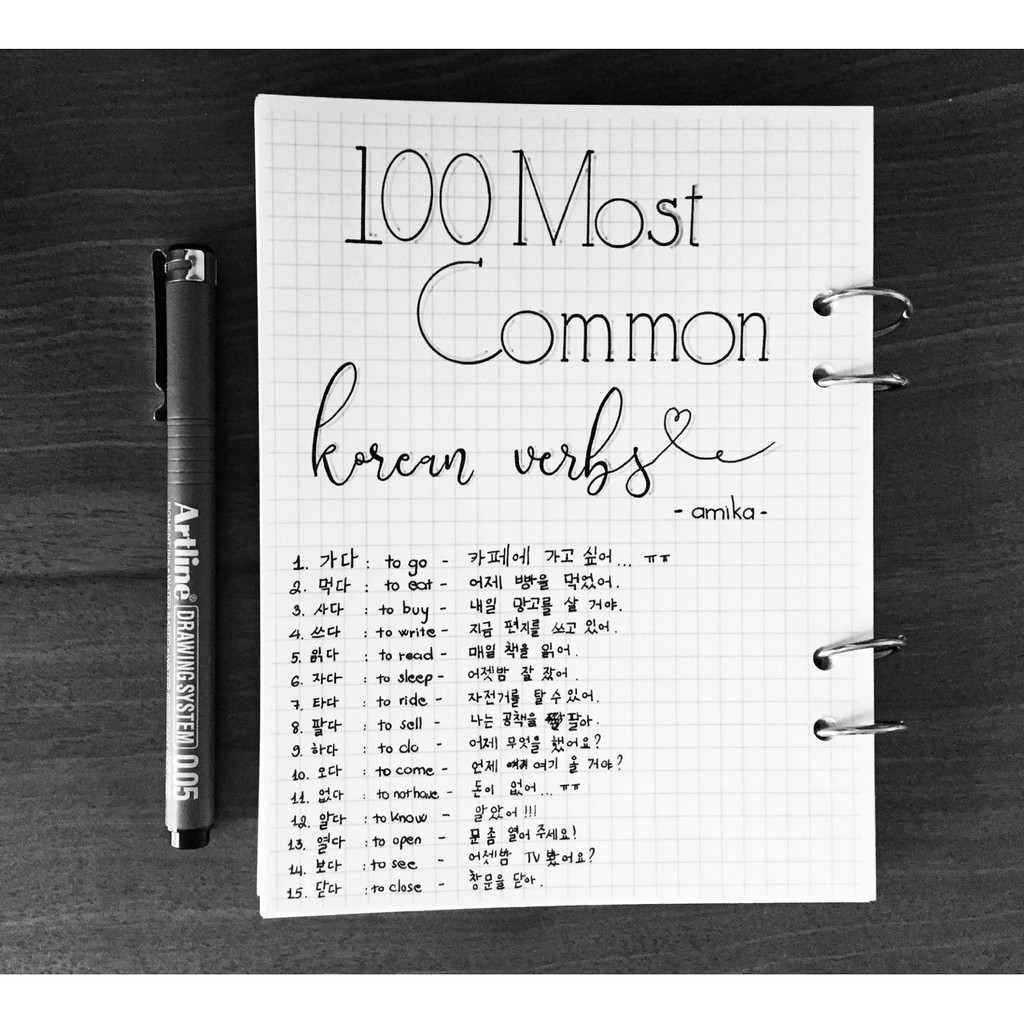 100 Most
Common
korean verbs
- amika -
1. 가다 : to go - 카페에 가고 싶어... ㅠㅠ
2. 먹다 : to eat - 어제 빵을 먹었어.
3. 사다 : to buy - 내일 망고를 살 거야.
4. 쓰다 : to write - 지금 편지를 쓰고 있어.
5. 읽다 : to read - 매일 책을 읽어.
6. 자다 : to sleep - 어젯밤 잘 잤어.
7. 타다 : to ride - 자전거를 탈 수 있어.
8. 팔다 : to sell - 나는 공책을 팔아.
9. 하다 : to do - 어제 무엇을 했어요?
10. 오다 : to come - 언제 여기 올 거야?
11. 없다 : to not have - 돈이 없어... ㅠㅠ
12. 알다 : to know - 알았어!!!
13. 열다 : to open - 문 좀 열어 주세요!
14. 보다 : to see - 어젯밤 TV 봤어요?
15. 닫다 : to close - 창문을 닫아.
Artline® DRAWING SYSTEM 0.05